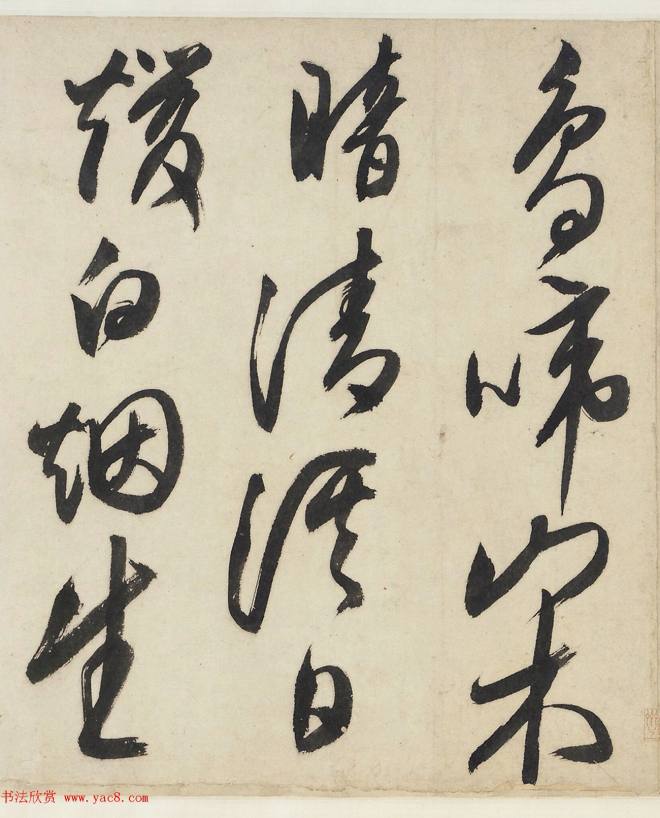 鳥啼山木
暗清溪日
煖白烟生
书法欣赏 www.yac8.com